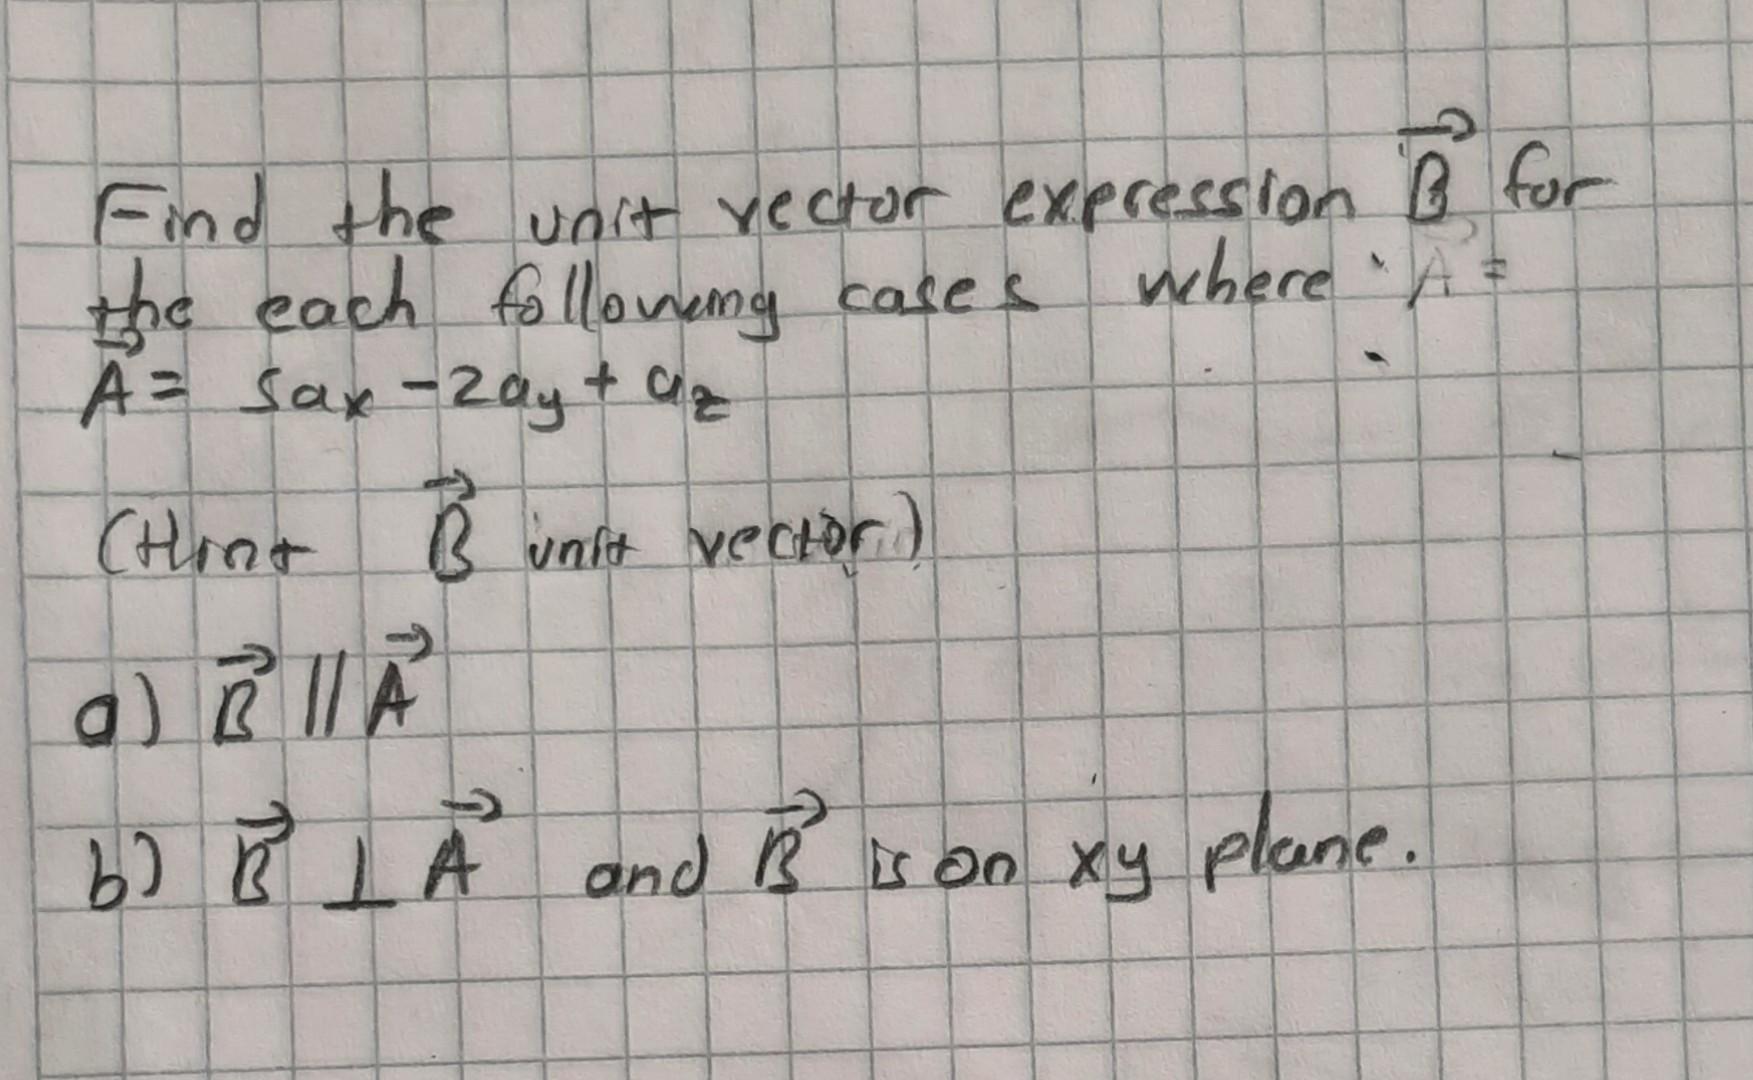 Find the unit vector expression B⃗ for
the each following cases where A =
A⃗ = 5ax - 2ay + az
(Hint B⃗ unit vector)
a) B⃗ // A⃗
b) B⃗ ⊥ A⃗ and B⃗ is on xy plane.